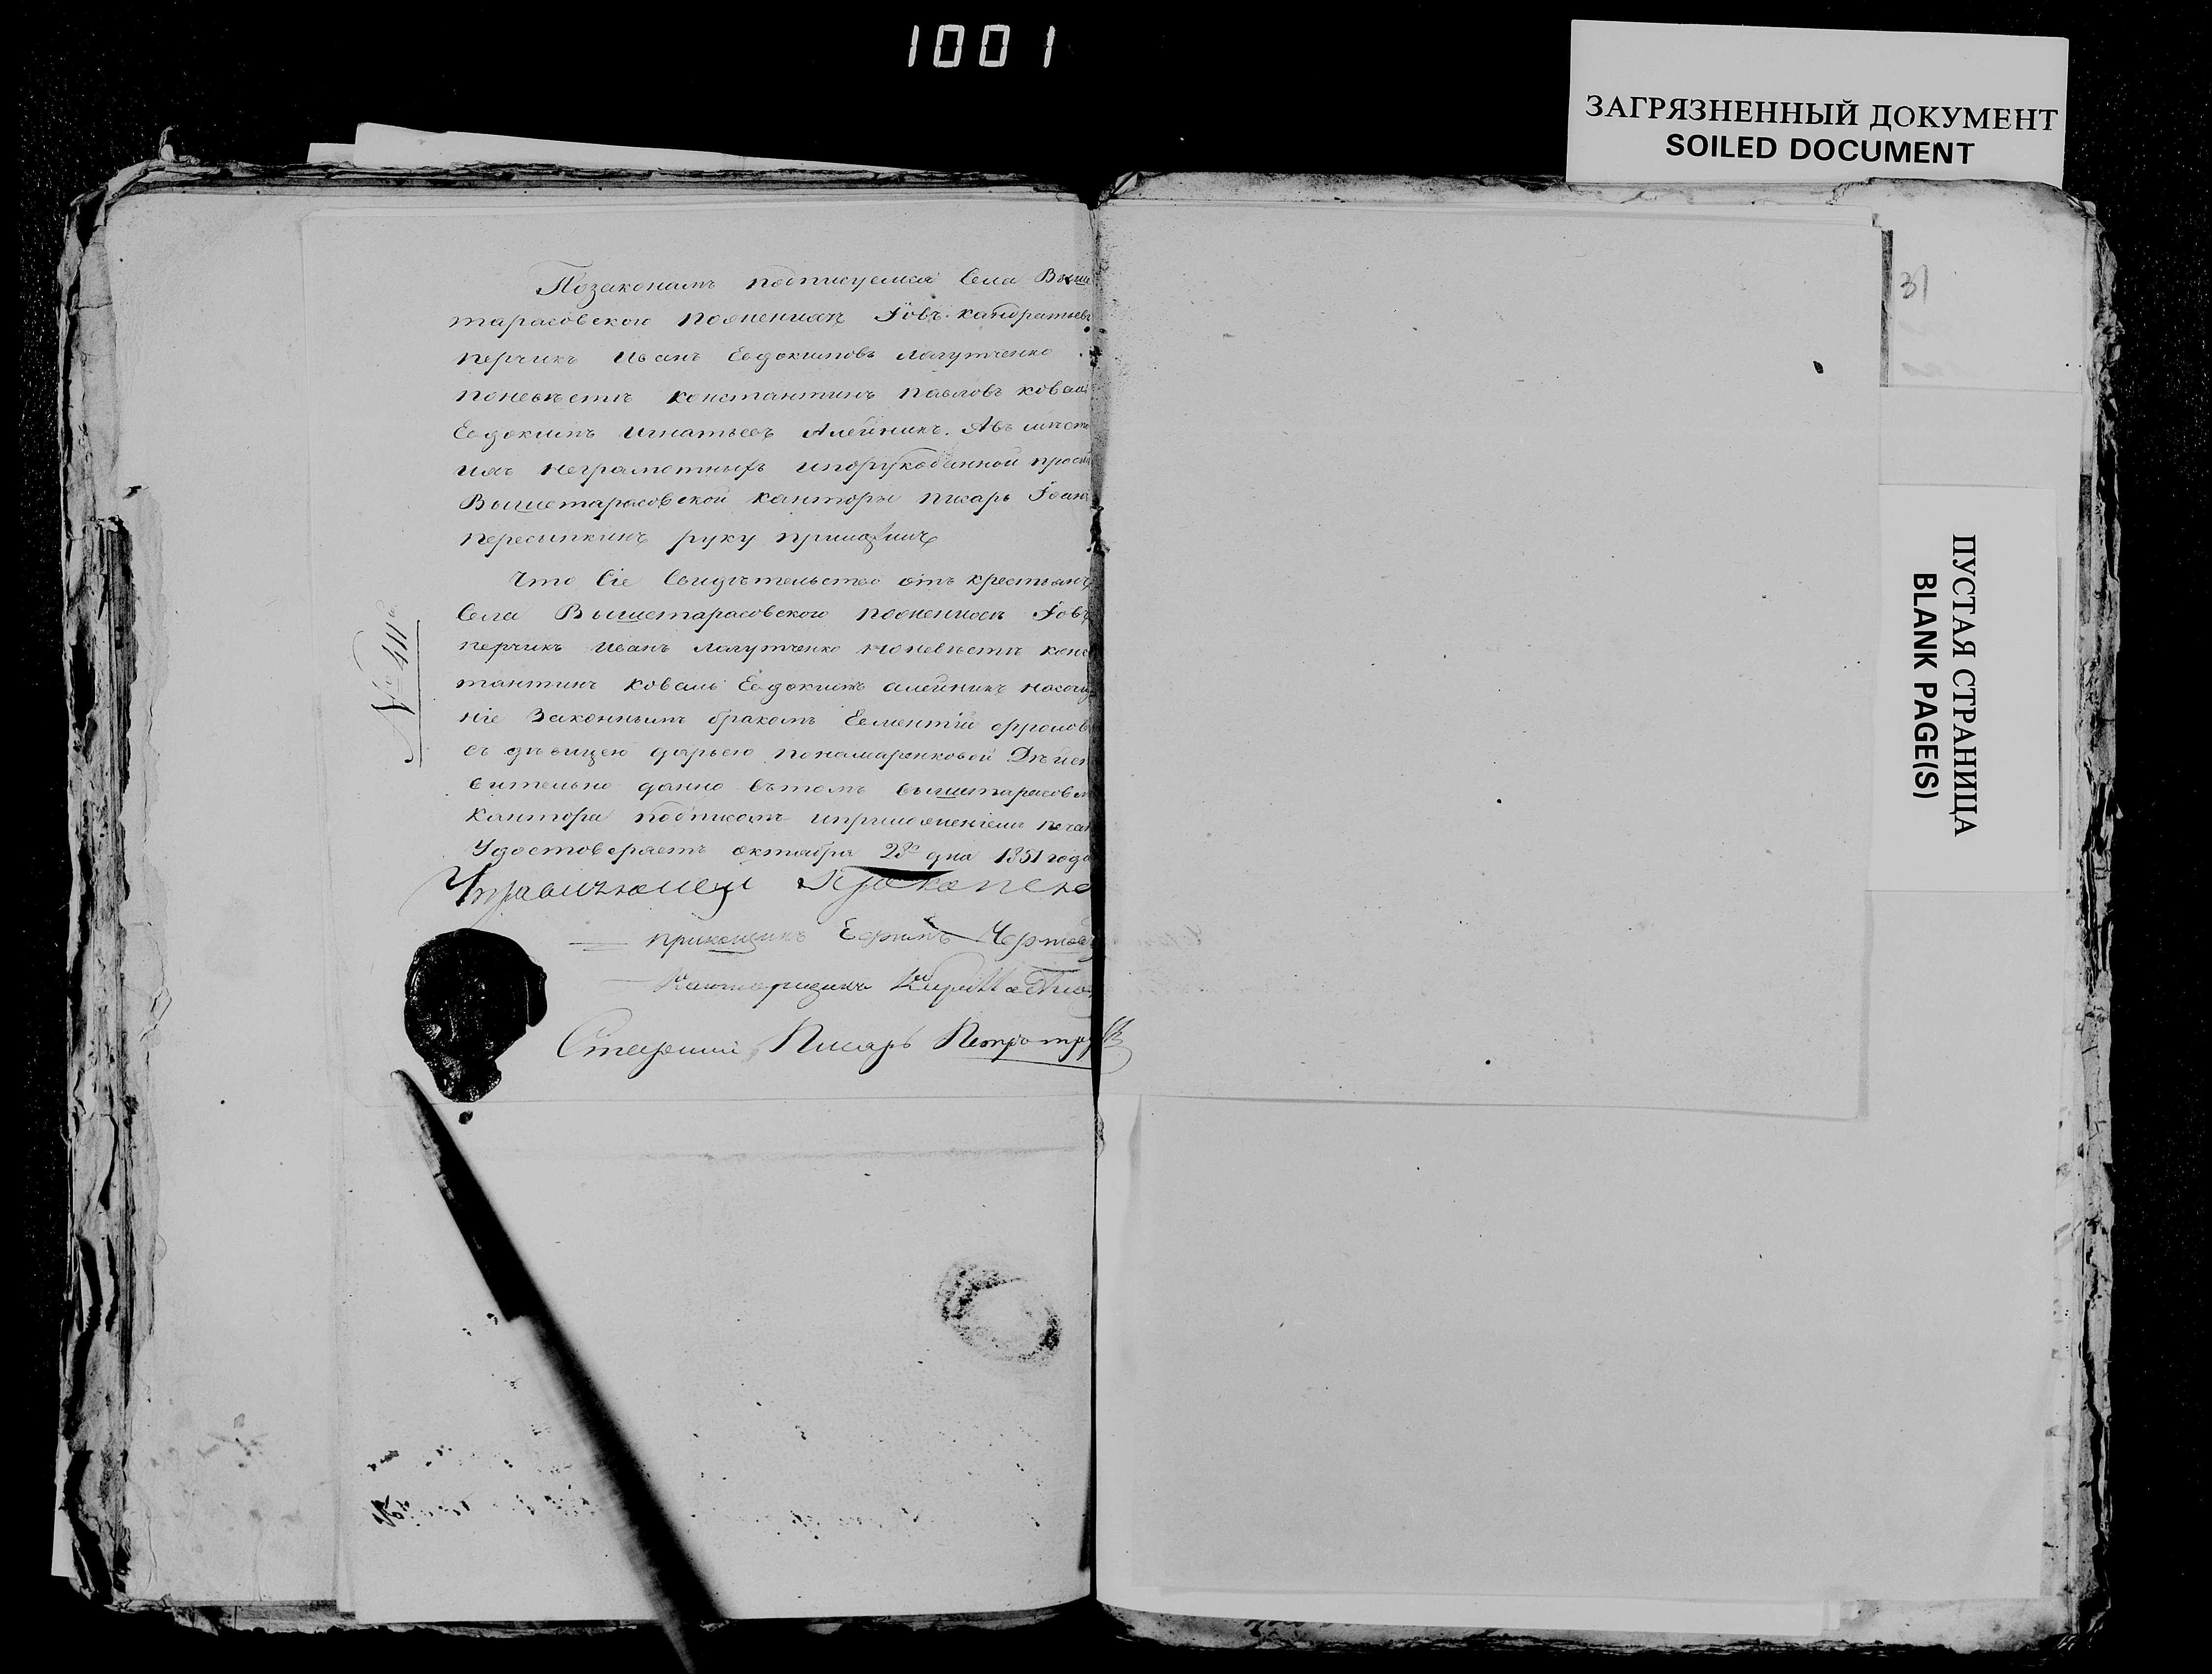 1001
ЗАГРЯЗНЕННЫЙ ДОКУМЕНТ
SOILED DOCUMENT
Позаконамъ подписуемся Села Выше
тарасовского Поженихъ Іовъ Кандратьевъ
перчикъ Иванъ Евдокимовъ Лагутченко
поневѣсти константинъ Павловъ коваль
Евдокимъ Игнатьевъ Алейникъ. Авъ мѣсто
ихъ неграмотныхъ ипорукоданной прозби
Вышетарасовской канторы писарь Іоанъ
пересипкинъ руку приложилъ
Что Сіе Свидѣтельство отъ крестьянъ
Села Вышетарасовского поженихѣ Іовъ
перчикъ Иванъ Лагутченко поневѣсти конс
тантинъ коваль Евдокимъ алейникъ насочета
ніе Законнымъ бракомъ Еементій фролов
съ дѣвицею дарьею понамаренковой Дѣйст
вительно данно вътомъ вышетарасовск
Кантора подписомъ иприложеніемъ печати
Удостоверяетъ октября 28го дня 1851 года
Управляющей Прокопенко
прикащикъ Ефимъ
Канторщикъ
Старший Писарь Петро
№ 411й
31
ПУСТАЯ СТРАНИЦА
BLANK PAGE(S)